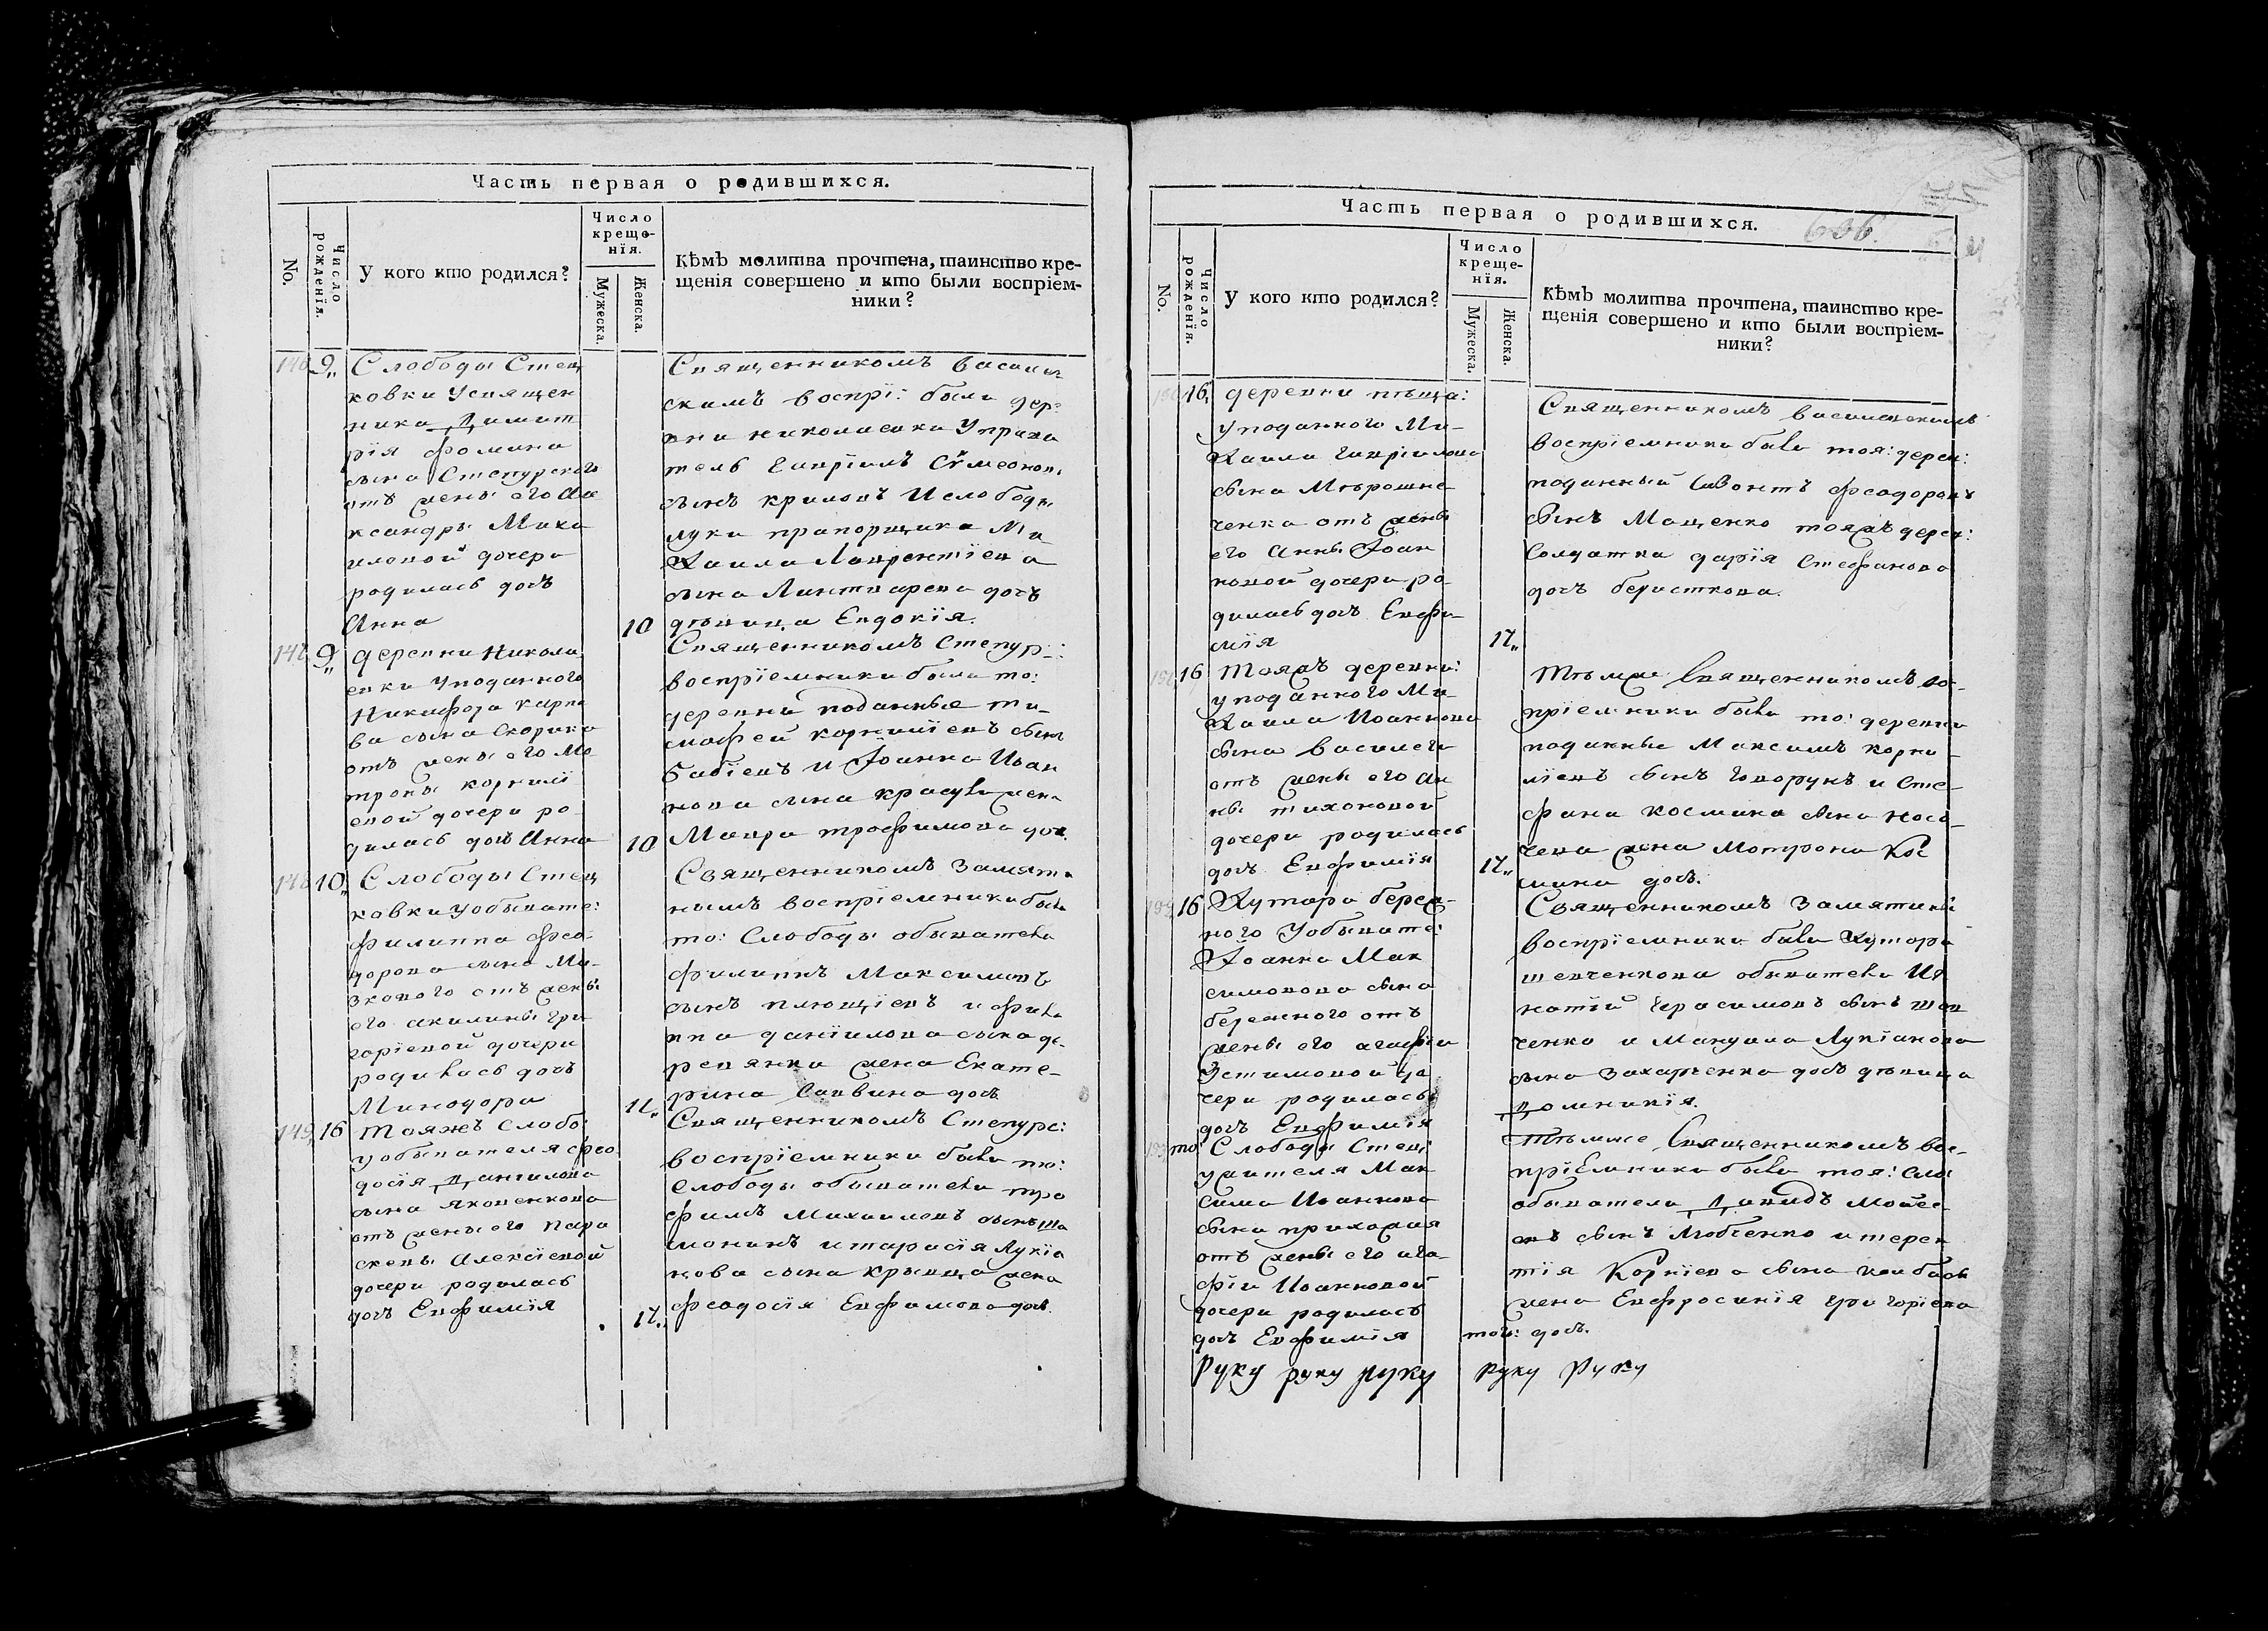 Часть первая о родившихся.
No.
Число рожденїя.
У кого кто родился?
Число
креще-
нїя.
Мужеска.
Женска.
Кѣмъ молитва прочтена, таинство кре-
щенія совершено и кто были воспріем-
ники?
146 9 Слободы Стец
ковки Усвящен
ника Димит
рїя Фомина
сына Степурского
отъ жены его Але
ксандры Миха
иловой дочери
родилась дочь
Анна
10
Священникомъ Василев
скимъ воспрї: были дер:
вни николаевки Управи
тель Гаврїилъ Сѵмеонов
сынъ крыловъ Ислободы
луки прапорщика Ми
хаила Лаврентїева
сына Линтварева дочь
дѣвица Евдокїя.
147 9 деревни Никола
евки Уподанного
Никифора карпо
ва сына Скорика
отъ жены его Ма
троны корнилї
евой дочери ро
дилась дочь Анна
10
Священникомъ Степур:
воспрїемники были то:
деревни поданные ти
мофей корнилїевъ сынъ
бабїевъ и Іоанна Иван
нова сына красули жена
Мавра трофимова доч.
148 10 Слободы Стец
ковки Уобывате:
филиппа Фео
дорова сына Ма
зкового отъ жены
его акилины гри
горїевой дочери
родилась дочь
Минодора
11
Священникомъ Замят
нымъ воспрїемники были
то: Слободы обыватели
филиппъ Максимовъ
сынъ плющїевъ и фили
ппа данїилова сына де
ревянки жена Екате
рина Саввина дочь
149 16 Тояжъ Слобо:
уобывателя Фео
досїя Данилова
сына Яковенкова
отъ жены его Пара
скевы Алексїевой
дочери родилась
дочь Евфимїя
17
Священникомъ Степурс:
воспрїемники были то:
Слободы обыватели тро
фимъ Михаиловъ сынъ
и тарасїя Лукїа
нова сына Крывца жена
Феодосїя Евфимова дочь.
Часть первая о родившихся.
636.
No.
Число рожденїя.
У кого кто родился?
Число
креще-
нїя.
Мужеска.
Женска.
Кѣмъ молитва прочтена, таинство кре-
щенія совершено и кто были воспріем-
ники?
150 16 деревни пѣща:
уподанного Ми-
хаила гаврїилова
сына Мѣрошне
ченка отъ жены
его Анны Іоан
новой дочери ро
дилась дочь Евфи
мїя
17
Священникомъ Василевскимъ
воспрїемники были тоя: дерев:
поданный Феодоровъ
сынъ Мащенко тояжъ дерев:
Солдатка дарїя Стефанова
дочь
151 16 Тояжъ деревни:
уподанного Ми
хаила Иоаннова
сына василеги
отъ жены его Ан
ны тихоновой
дочери родилась
дочь Евфимїя
17
Тѣмже Священникомъ вос-
прїемники были то: деревни
поданные Максимъ корни
лїевъ сынъ говорунъ и Сте
фана космина сына носа
чева жена Матрона Кос
мина дочь.
152 16 Хутора береж
ного Уобывате:
Іоанна Мак
симовова сына
бережного отъ
жены его агафїи
Устимовой до
чери родилась
дочь Евфимїя
Священникомъ Замятнымъ
воспрїемники были Хутора
шевченкова обыватели Иг
натїй Герасимовъ сынъ шев
ченко и Мануила Лукїанова
сына Захарченка дочь дѣвица
Домникїя.
153 то: Слободы Стец:
учителя Мак
сима Иоаннова
сына приходмя
отъ жены его ага
фїи Иоанновой
дочери родилась
дочь Евфимїя
Тѣмже Священникомъ вос-
прїемники были тоя: сло:
обыватели Давидъ Моисе
евъ сынъ Любченко и терен
тїя Корнїева сына
жена Евфросинїя григорїева
дочь.
руку руку руку руку руку